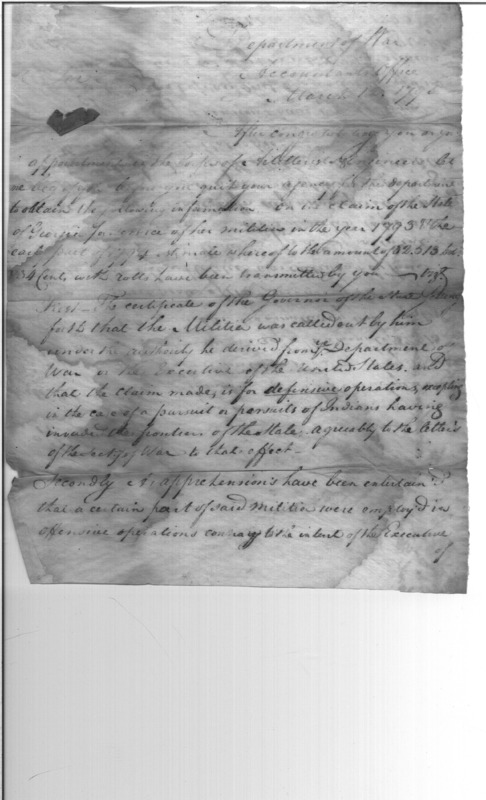 Department of War
Accountants Office
March 12. 179
After congratulating you on your
appointment in the Corps of Artillerists & Engineers let
me beg of you before you quit your agency for this department
to obtain the following information on the claim of the State
of Georgia for service of her militia in the year 1793 & the
early part of 1794 estimate whereof to the amount of dols
34 Cents with rolls have been transmitted by you
First The certificate of the Governor of the State setting
forth that the Militia was called out by him
under the authority he derived from ye. Department of
War or the Executive of the United States, and
that the claim made, is for defensive operations, excepting
in the case of a pursuit or pursuits of Indians having
invaded the frontiers of the State, agreeably to the letters
of the Secty of War to that effect.
Secondly As apprehensions have been entertain'd
that a certain part of said militia were employ'd in
offensive operations contrary to the intent of the Executive
of